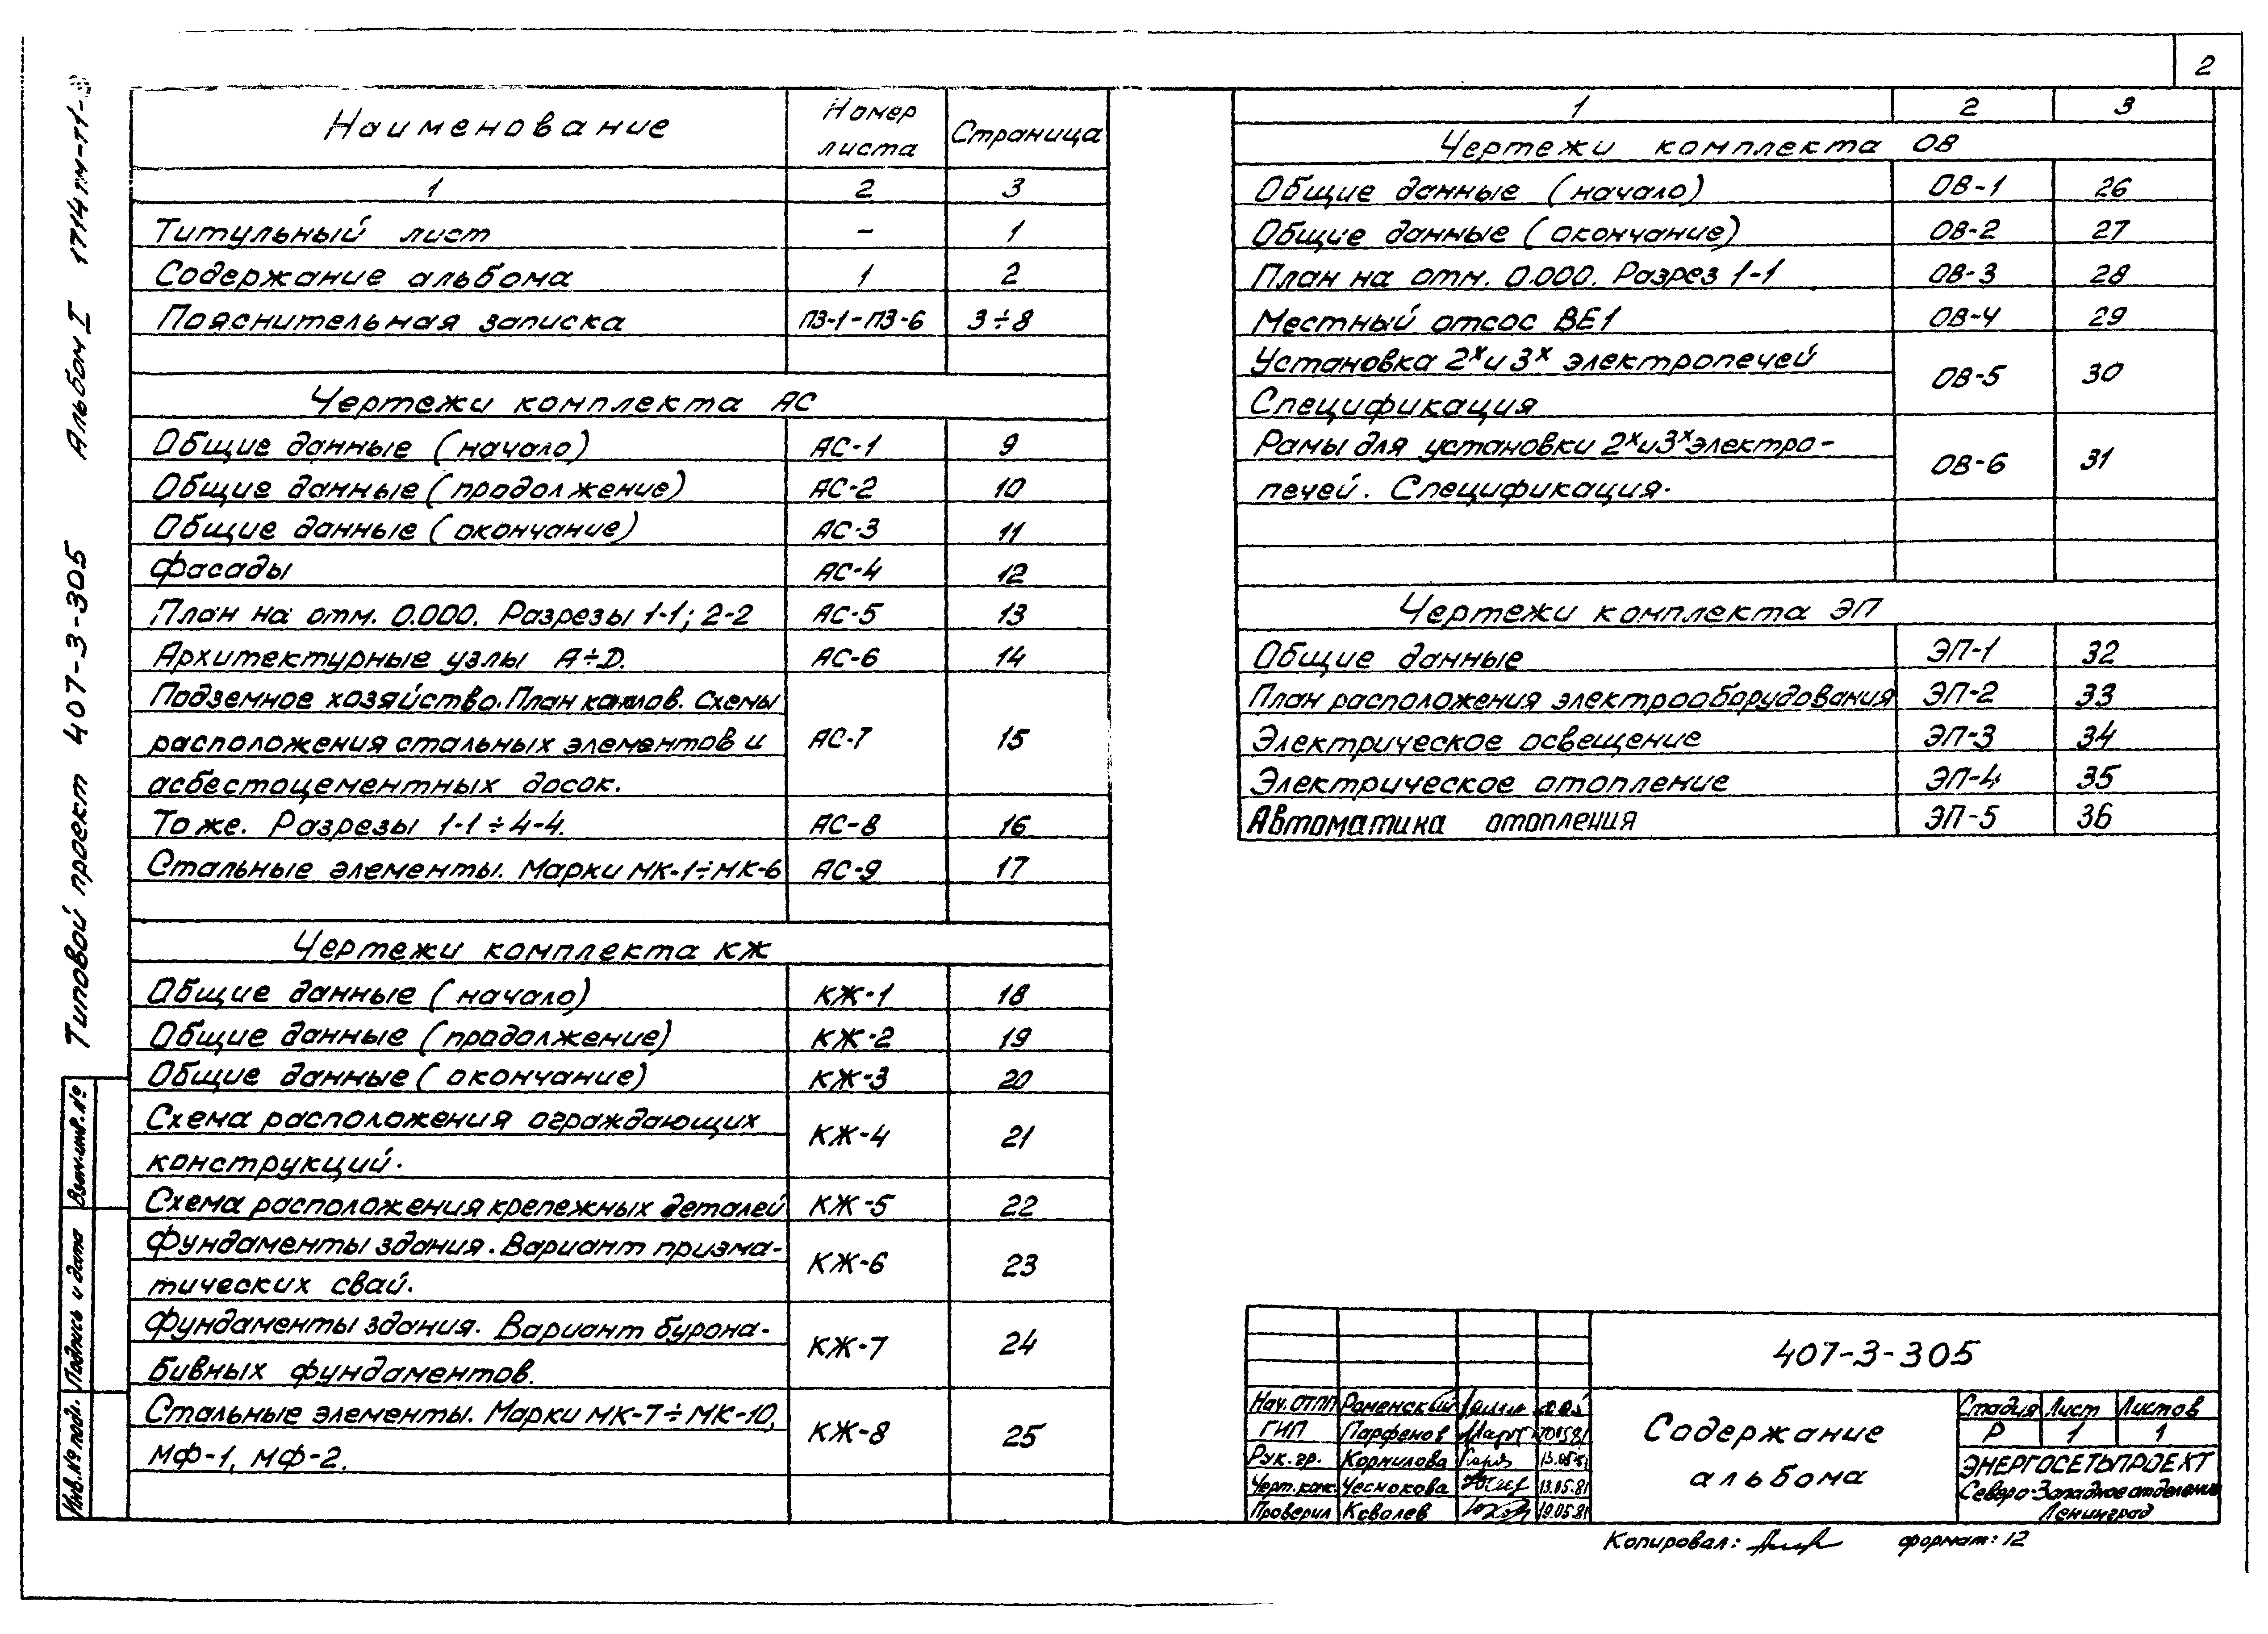 2
Типовой проект 407-3-305 Альбом I 1714тм-т1-
Наименование Номер листа Страница
1 2 3
Титульный лист - 1
Содержание альбома 1 2
Пояснительная записка ПЗ-1-ПЗ-6 3÷8
Чертежи комплекта АС
Общие данные (начало) АС-1 9
Общие данные (продолжение) АС-2 10
Общие данные (окончание) АС-3 11
Фасады АС-4 12
План на отм. 0.000. Разрезы 1-1; 2-2 АС-5 13
Архитектурные узлы А÷Д. АС-6 14
Подземное хозяйство. План каналов. Схемы
расположения стальных элементов и АС-7 15
асбестоцементных досок.
То же. Разрезы 1-1÷4-4. АС-8 16
Стальные элементы. Марки МК-1÷МК-6 АС-9 17
Чертежи комплекта КЖ
Общие данные (начало) КЖ-1 18
Общие данные (продолжение) КЖ-2 19
Общие данные (окончание) КЖ-3 20
Схема расположения ограждающих КЖ-4 21
конструкций.
Схема расположения крепежных деталей КЖ-5 22
Фундаменты здания. Вариант призма- КЖ-6 23
тических свай.
Фундаменты здания. Вариант бурона- КЖ-7 24
бивных фундаментов.
Стальные элементы. Марки МК-7÷МК-10, КЖ-8 25
МФ-1, МФ-2.
1 2 3
Чертежи комплекта ОВ
Общие данные (начало) ОВ-1 26
Общие данные (окончание) ОВ-2 27
План на отм. 0.000. Разрез 1-1 ОВ-3 28
Местный отсос ВЕ1 ОВ-4 29
Установка 2х и 3х электропечей ОВ-5 30
Спецификация
Рамы для установки 2х и 3х электро- ОВ-6 31
печей. Спецификация.
Чертежи комплекта ЭП
Общие данные ЭП-1 32
План расположения электрооборудования ЭП-2 33
Электрическое освещение ЭП-3 34
Электрическое отопление ЭП-4 35
Автоматика отопления ЭП-5 36
Взам.инв.№
Подпись и дата
Инв.№ подл.
407-3-305
Нач.ОТПП Роменский
ГИП Парфенов
Рук.гр. Корнилова
Черт.конс. Чеснокова 13.05.81
Проверил Ковалев 19.05.81
Содержание
альбома
Стадия Лист Листов
Р 1 1
ЭНЕРГОСЕТЬПРОЕКТ
Северо-Западное отделение
Ленинград
Копировал: формат: 12